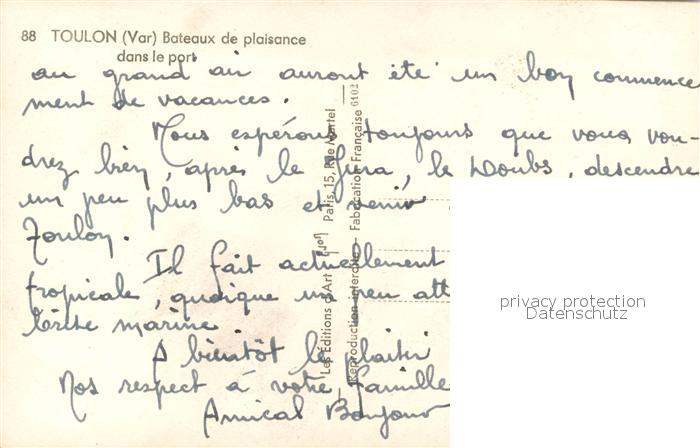 88 TOULON (Var) Bateaux de plaisance
dans le port
au grand air auront été un bon commence
ment de vacances.
Nous espérons toujours que vous vou-
drez bien, après le Jura, le Doubs, descendre
un peu plus bas et venir
Toulon.
Il fait actuellement
tropicale, quoique un peu att
brise marine.
A bientôt le plaisir
Nos respect à votre famille
Amical Bonjour
Les Éditions d'Art Paris, 15, Rue Martel
Reproduction interdite - Fabrication Française 6102
privacy protection
Datenschutz